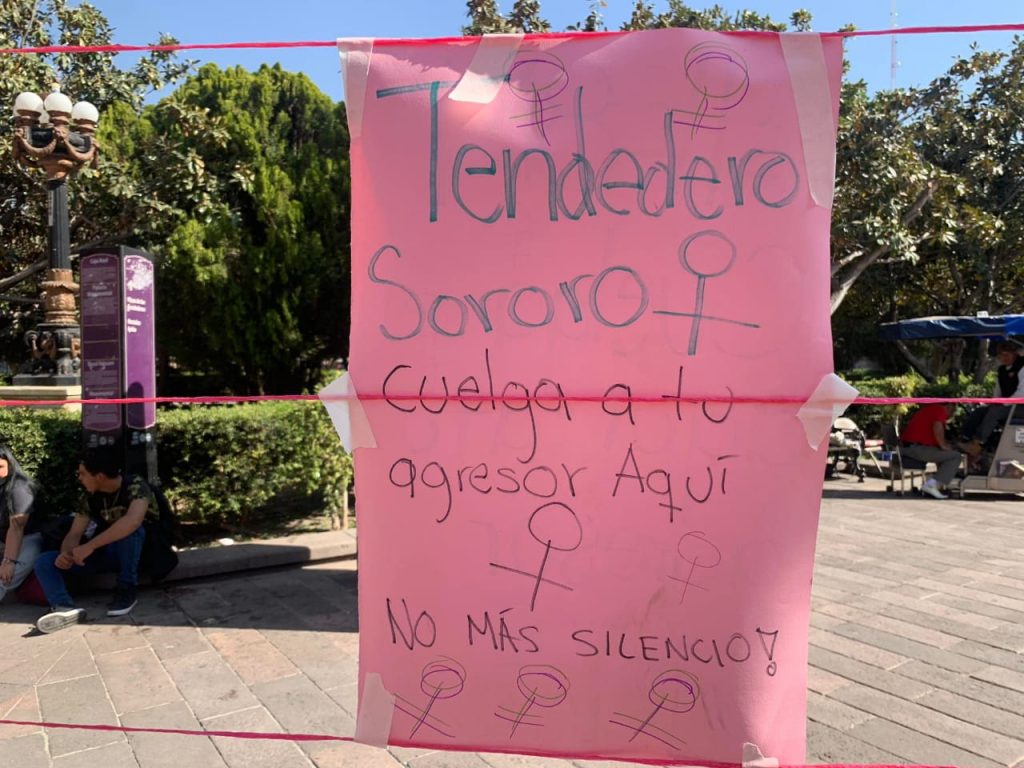 Tendedero
Sororo
Cuelga a tu
agresor Aquí
NO MÁS SILENCIO!